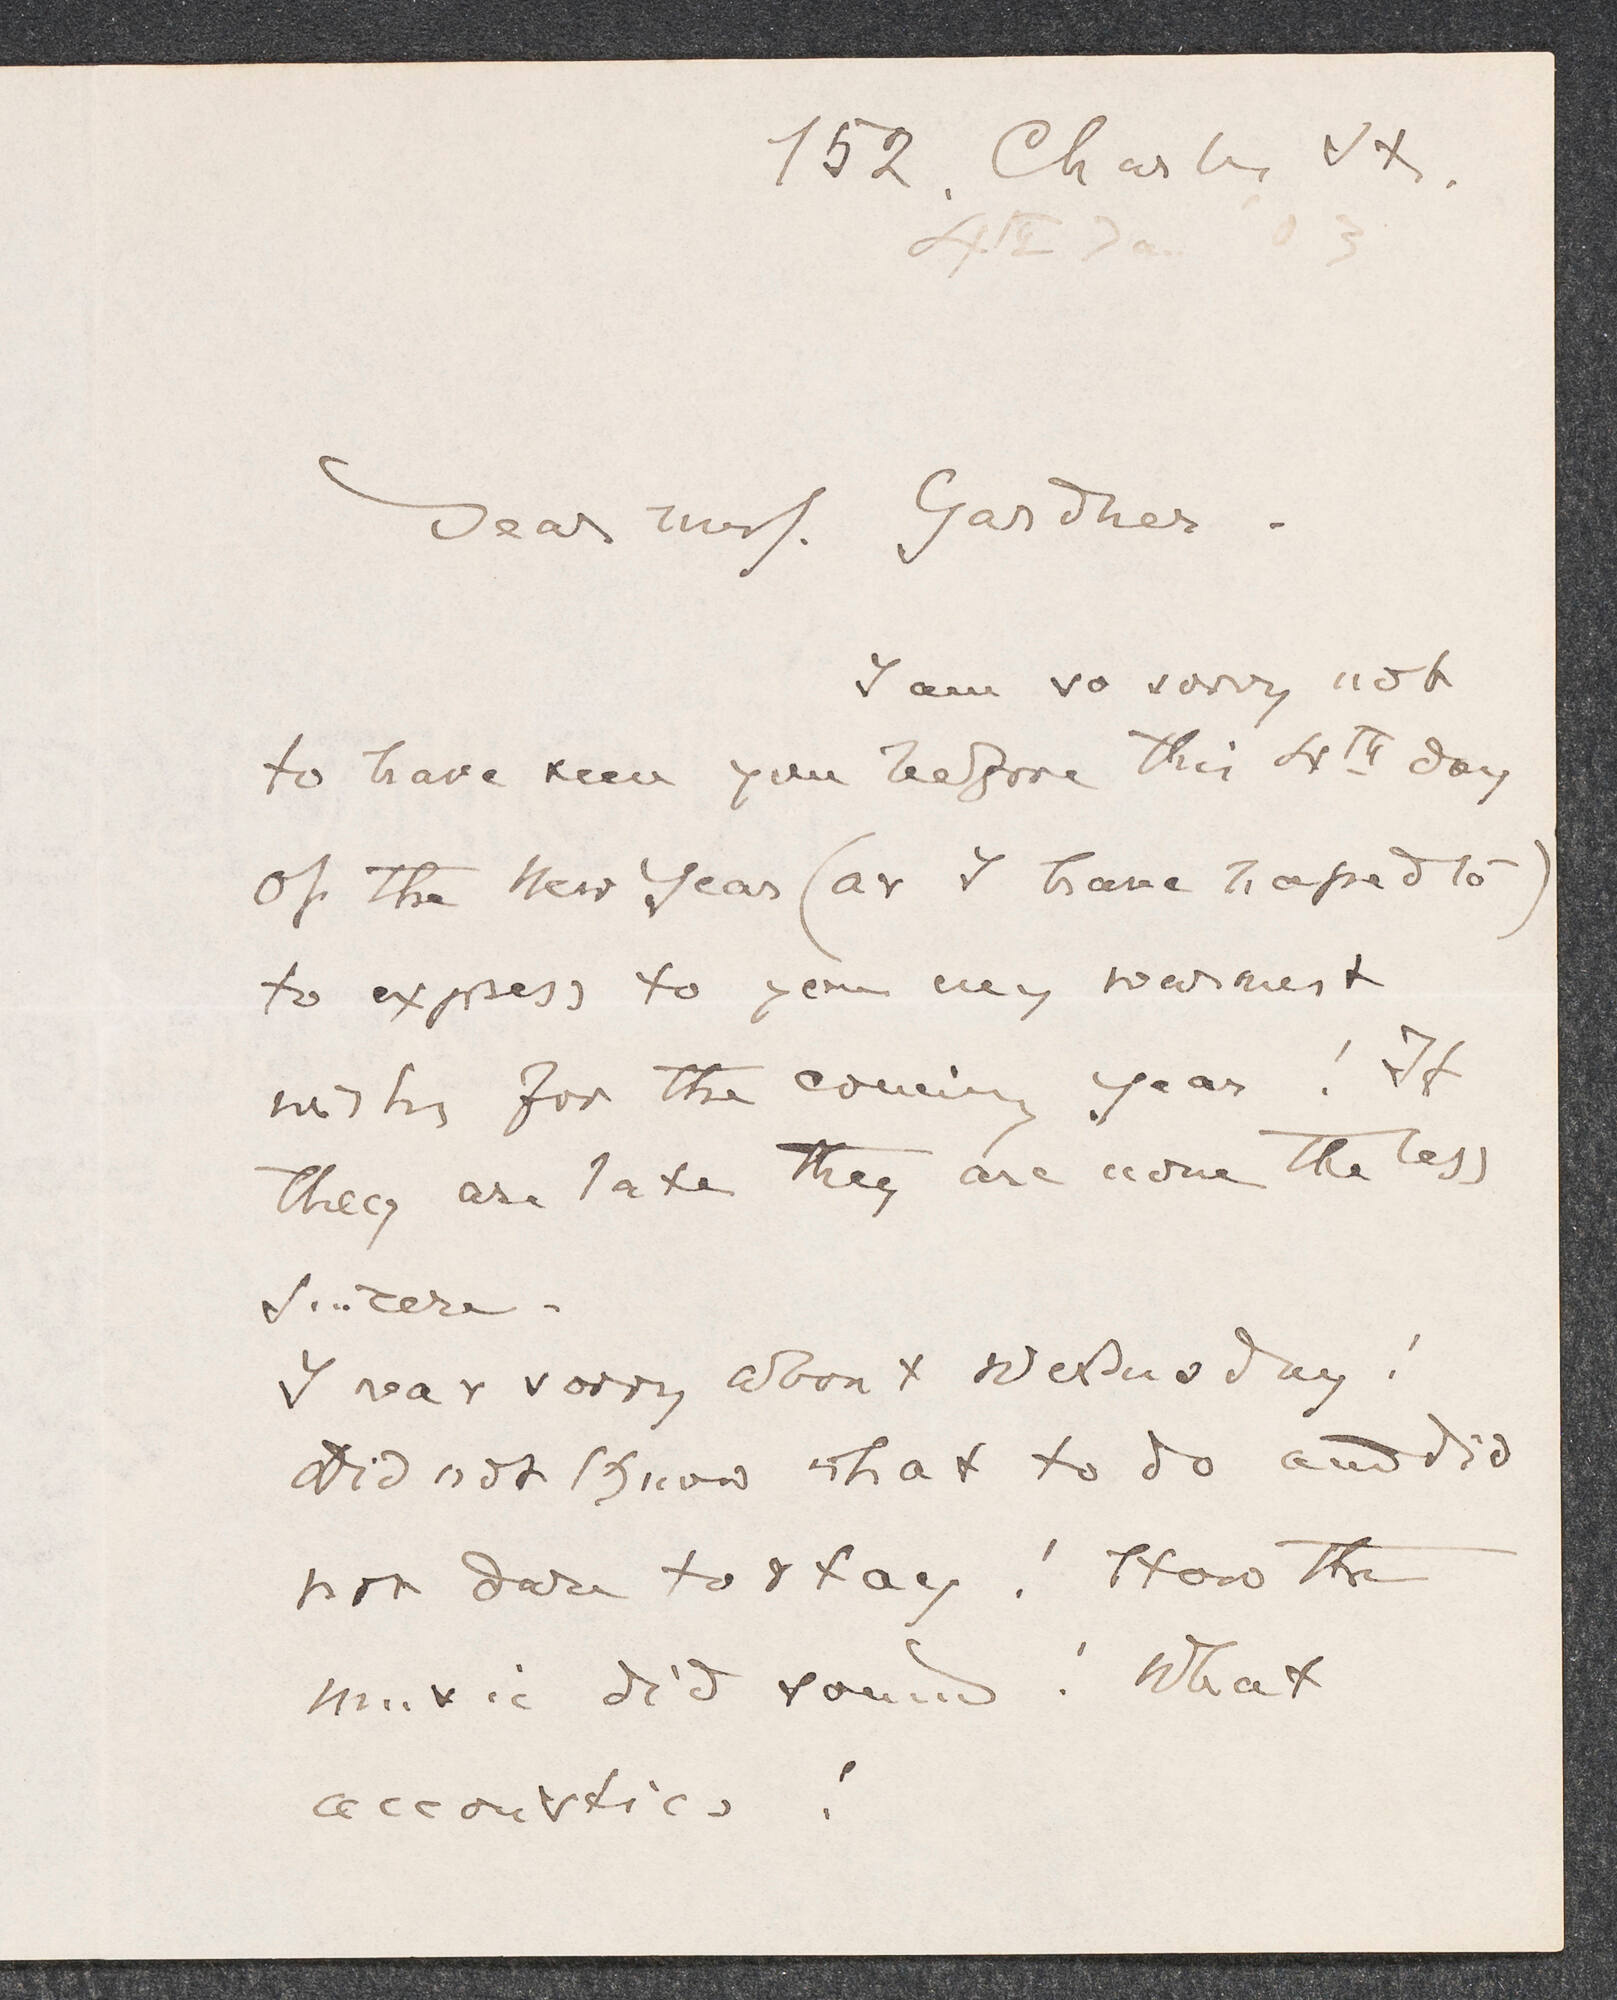 152. Charles St.
4th Jan '03
Dear Mrs. Gardner -
I am so sorry not
to have seen you before this 4th day
of the New Year (as I have hoped to)
to express to you my warmest
wishes for the coming year! If
they are late they are none the less
sincere -
I was sorry about Wednesday!
did not know what to do and did
not dare to stay! How the
music did sound! What
accoustics!